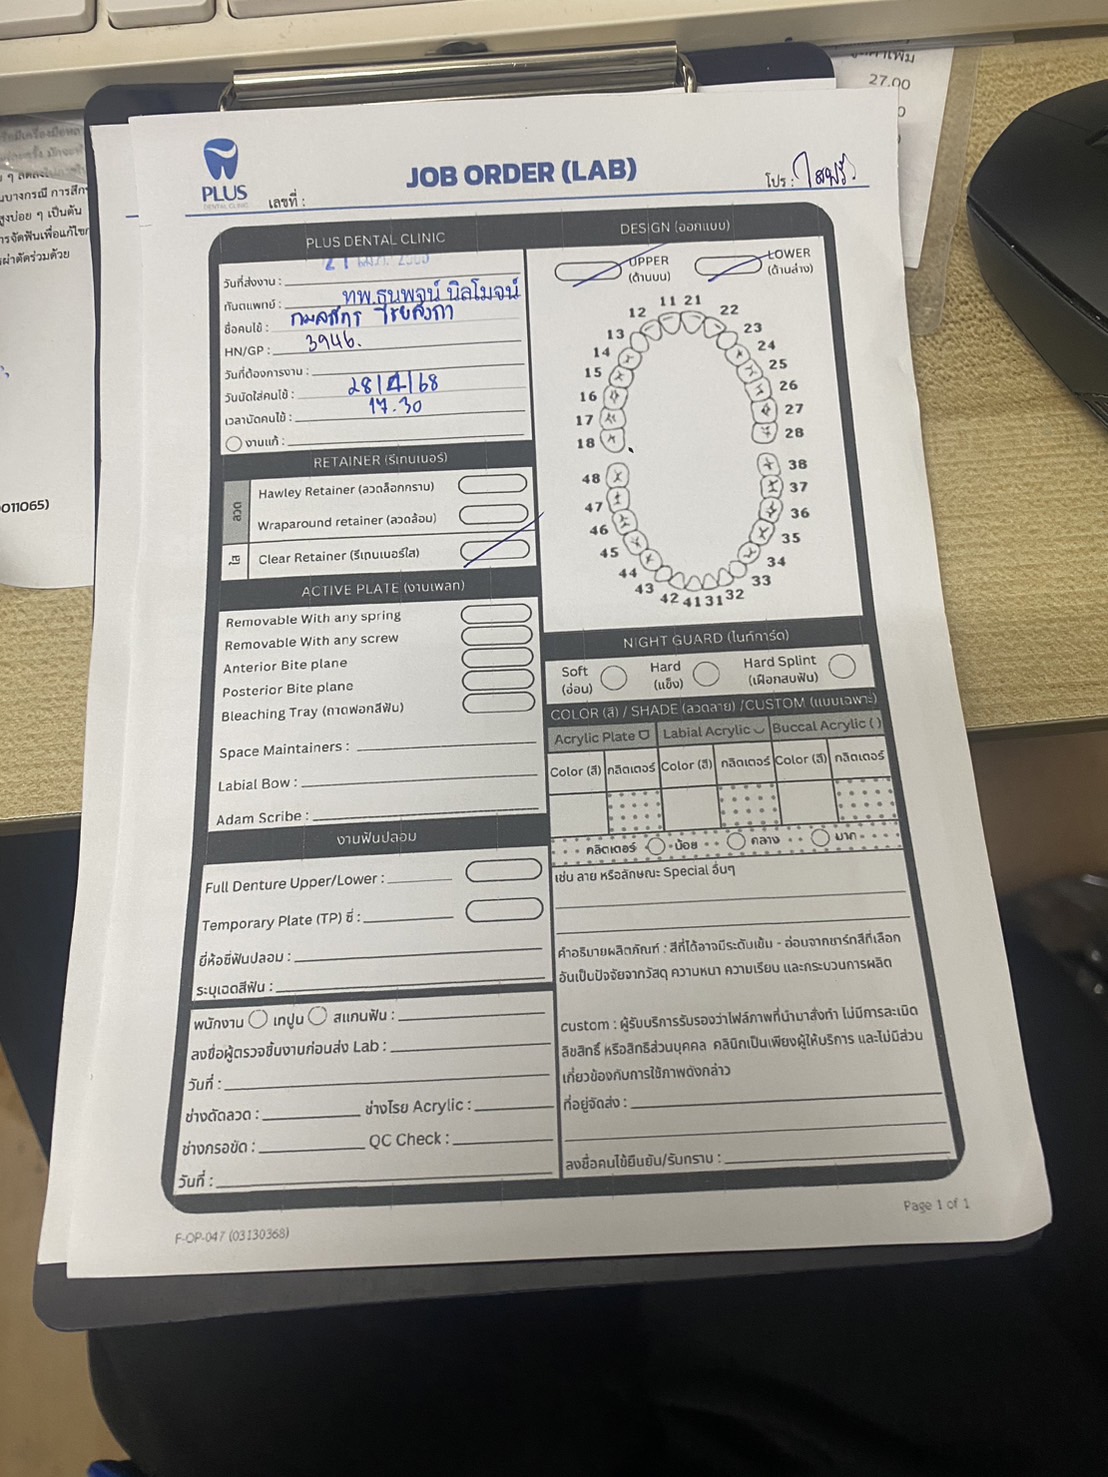 27.00
PLUS
DENTAL CLINIC
JOB ORDER (LAB)
เลขที่ :
โปร : ใสฟรี
บางกรณี การสึก
สูงบ่อย ๆ เป็นต้น
ารจัดฟันเพื่อแก้ไข
ผ่าตัดร่วมด้วย
011065)
PLUS DENTAL CLINIC
วันที่ส่งงาน : 21
ทันตแพทย์ : ทพ.ธนพจน์ นิลโมจน์
ชื่อคนไข้ :
HN/GP : 3946.
วันที่ต้องการงาน :
วันนัดใส่คนไข้ : 28/4/68
เวลานัดคนไข้ : 17.30
งานแก้ :
RETAINER (รีเทนเนอร์)
ลวด
Hawley Retainer (ลวดล็อกกราม)
Wraparound retainer (ลวดล้อม)
ใส
Clear Retainer (รีเทนเนอร์ใส)
ACTIVE PLATE (งานเพลท)
Removable With any spring
Removable With any screw
Anterior Bite plane
Posterior Bite plane
Bleaching Tray (ถาดฟอกสีฟัน)
Space Maintainers :
Labial Bow :
Adam Scribe :
งานฟันปลอม
Full Denture Upper/Lower :
Temporary Plate (TP) ซี่ :
ยี่ห้อซี่ฟันปลอม :
ระบุเฉดสีฟัน :
พนักงาน เทปูน สแกนฟัน :
ลงชื่อผู้ตรวจชิ้นงานก่อนส่ง Lab :
วันที่ :
ช่างดัดลวด : ช่างโรย Acrylic :
ช่างกรอขัด : QC Check :
วันที่ :
DESIGN (ออกแบบ)
UPPER
(ด้านบน)
LOWER
(ด้านล่าง)
11 21
12 22
13 23
14 24
15 25
16 26
17 27
18 28
48 38
47 37
46 36
45 35
44 34
43 33
42 41 31 32
NIGHT GUARD (ไนท์การ์ด)
Soft
(อ่อน)
Hard
(แข็ง)
Hard Splint
(เฝือกสบฟัน)
COLOR (สี) / SHADE (ลวดลาย) /CUSTOM (แบบเฉพาะ)
Acrylic Plate Labial Acrylic Buccal Acrylic ( )
Color (สี) กลิตเตอร์ Color (สี) กลิตเตอร์ Color (สี) กลิตเตอร์
กลิตเตอร์ น้อย กลาง มาก
เช่น ลาย หรือลักษณะ Special อื่นๆ
คำอธิบายผลิตภัณฑ์ : สีที่ได้อาจมีระดับเข้ม - อ่อนจากชาร์ทสีที่เลือก
อันเป็นปัจจัยจากวัสดุ ความหนา ความเรียบ และกระบวนการผลิต
custom : ผู้รับบริการรับรองว่าไฟล์ภาพที่นำมาสั่งทำ ไม่มีการละเมิด
ลิขสิทธิ์ หรือสิทธิส่วนบุคคล คลินิกเป็นเพียงผู้ให้บริการ และไม่มีส่วน
เกี่ยวข้องกับการใช้ภาพดังกล่าว
ที่อยู่จัดส่ง :
ลงชื่อคนไข้ยืนยัน/รับทราบ :
F-OP-047 (03130368)
Page 1 of 1